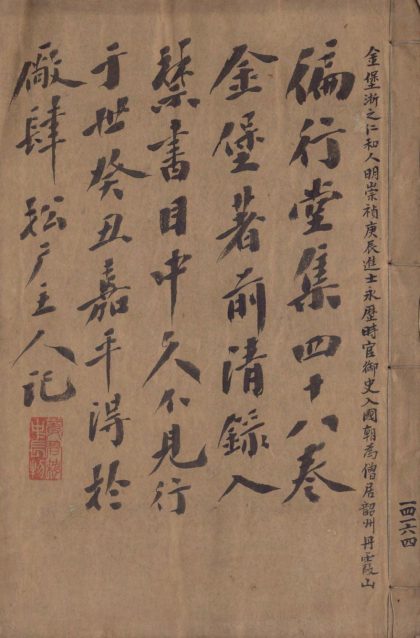 金堡浙之仁和人明崇禎庚辰進士永歷時官御史入國朝為僧居韶州丹霞山
徧行堂集四十八卷
金堡著前清錄入
禁書目中久不見行
于世癸丑嘉平得於
廠肆 户主人記
一四一六四